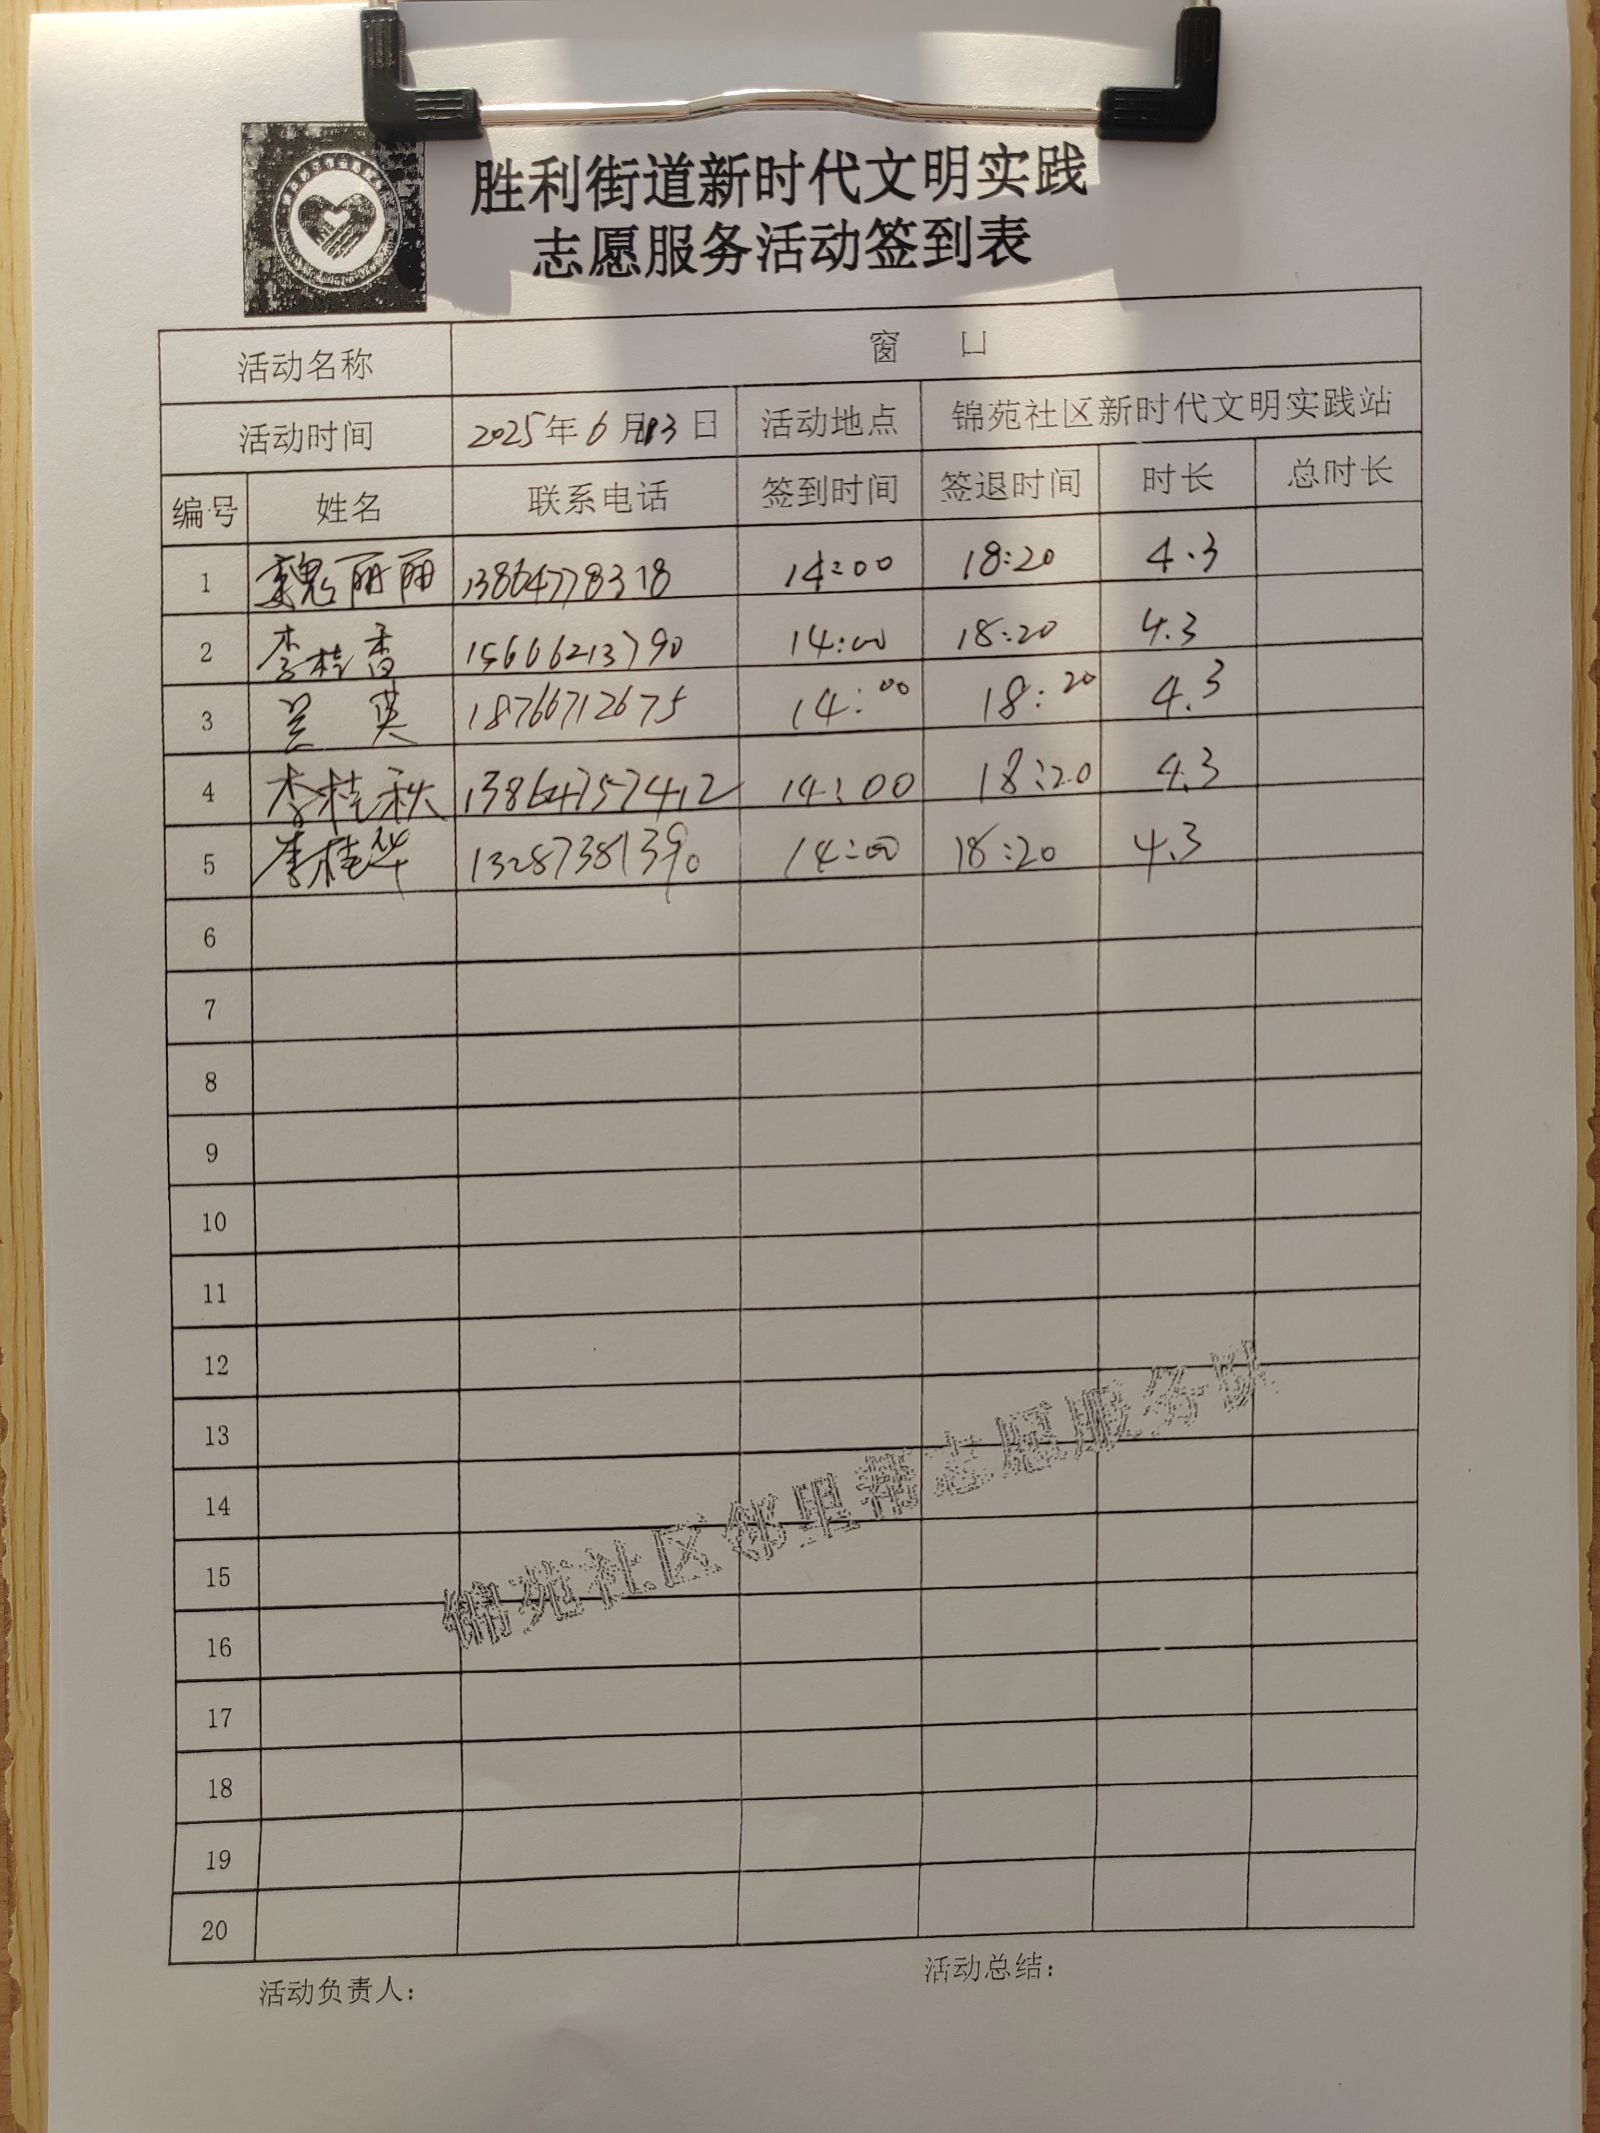 胜利街道新时代文明实践
志愿服务活动签到表
活动名称 窗 口
活动时间 2025年6月13日 活动地点 锦苑社区新时代文明实践站
编号 姓名 联系电话 签到时间 签退时间 时长 总时长
1 魏丽丽 13864778318 14:00 18:20 4.3
2 李桂香 15666213790 14:00 18:20 4.3
3 吴英 18766712675 14:00 18:20 4.3
4 李桂秋 13864757412 14:00 18:20 4.3
5 李桂华 13287381390 14:00 18:20 4.3
6
7
8
9
10
11
12
13
14
15
16
17
18
19
20
锦苑社区邻里帮志愿服务队
活动负责人： 活动总结：